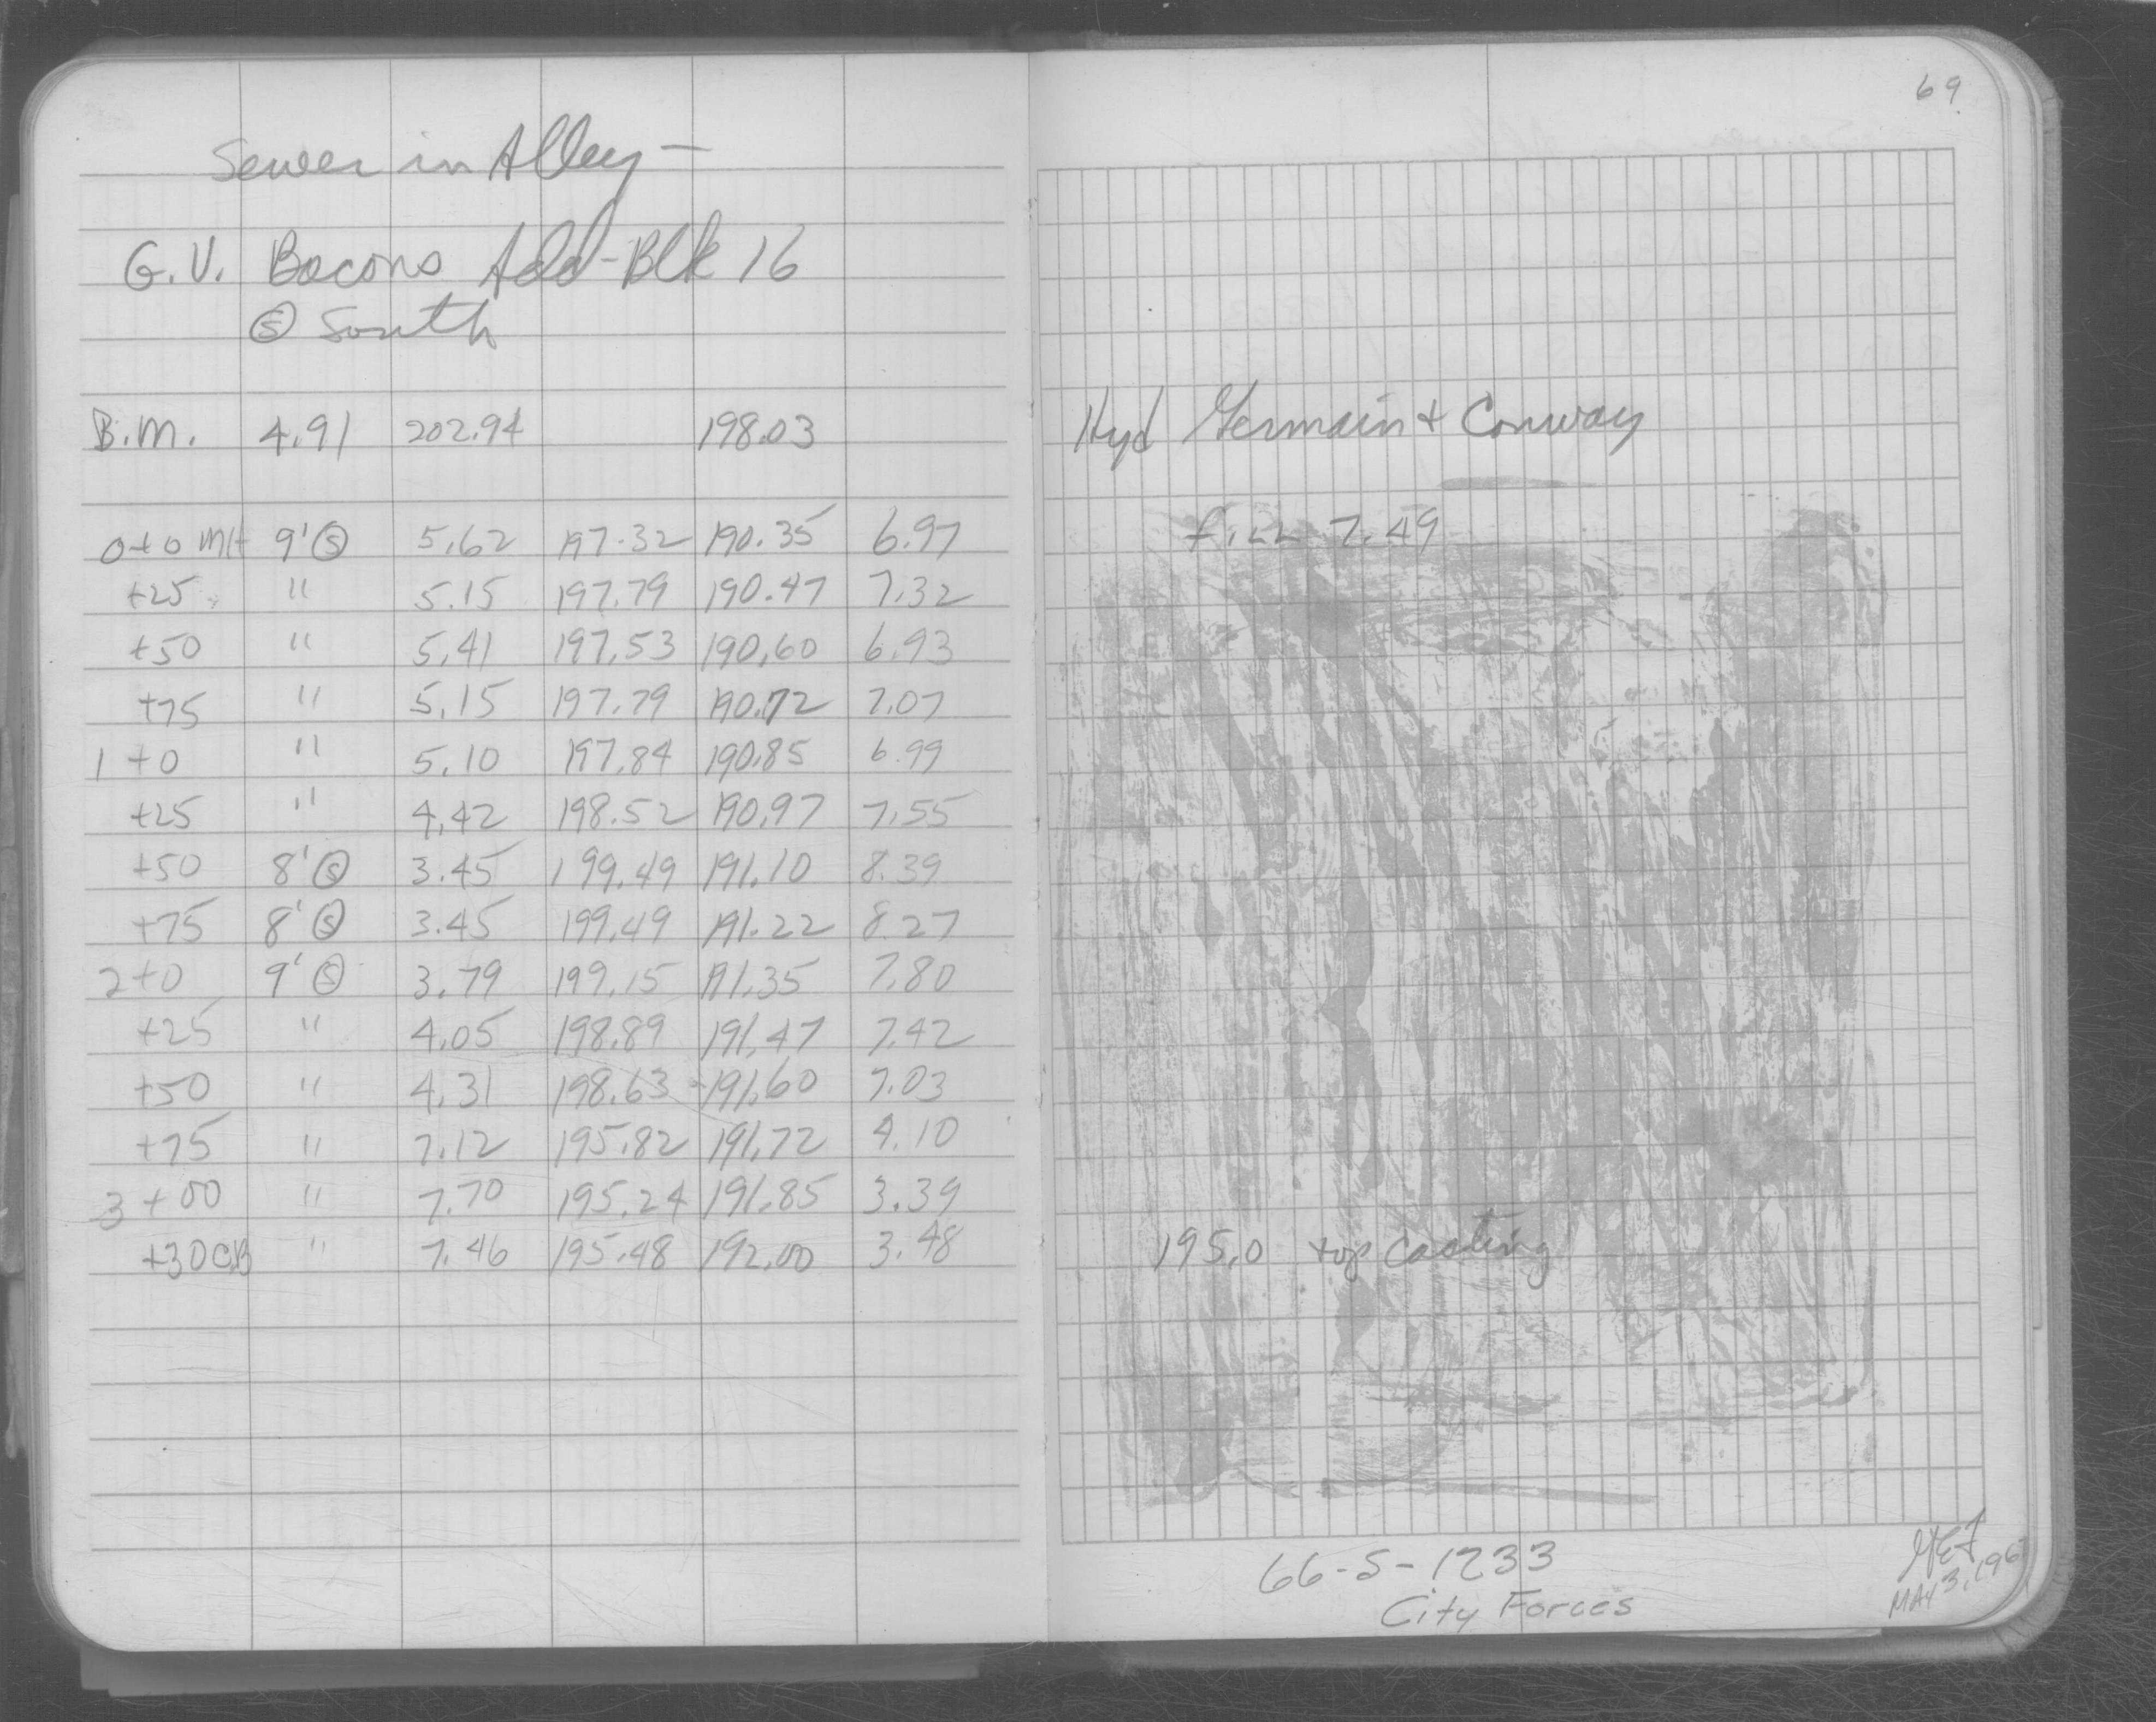 69
Sewer in Alley -
G.V. Bacons Add - Blk 16
Ⓢ South
B.M. 4.91 202.94 198.03 Hyd Germain + Conway
0+0 MH 9' Ⓢ 5.62 197.32 190.35 6.97 fill 7.49
+25 " 5.15 197.79 190.47 7.32
+50 " 5.41 197.53 190.60 6.93
+75 " 5.15 197.79 190.72 7.07
1+0 " 5.10 197.84 190.85 6.99
+25 " 4.42 198.52 190.97 7.55
+50 8' Ⓢ 3.45 199.49 191.10 8.39
+75 8' Ⓢ 3.45 199.49 191.22 8.27
2+0 9' Ⓢ 3.79 199.15 191.35 7.80
+25 " 4.05 198.89 191.47 7.42
+50 " 4.31 198.63 191.60 7.03
+75 " 7.12 195.82 191.72 4.10
3+00 " 7.70 195.24 191.85 3.39
+30 CB " 7.46 195.48 192.00 3.48 195.0 top casting
66-S-1233
City Forces
MAY 3,